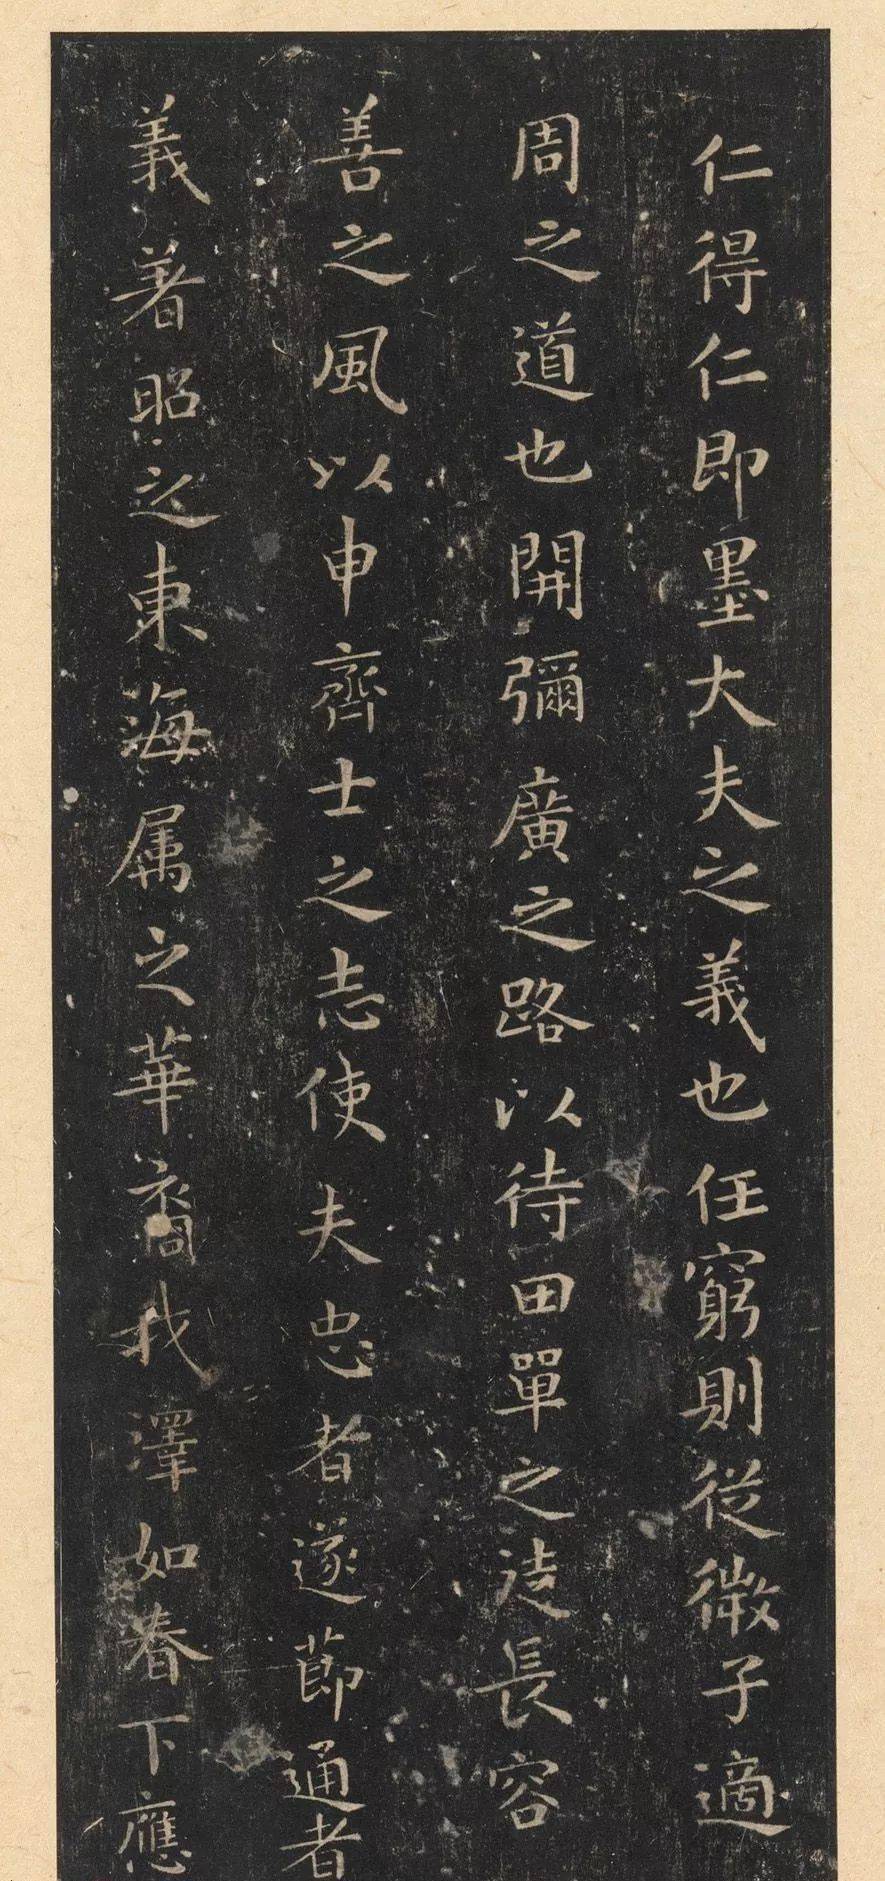 仁得仁即墨大夫之義也任窮則從微子適
周之道也開彌廣之路以待田單之徒長容
善之風以申齊士之志使夫忠者遂節通者
義著昭之東海属之華裔我澤如春下應